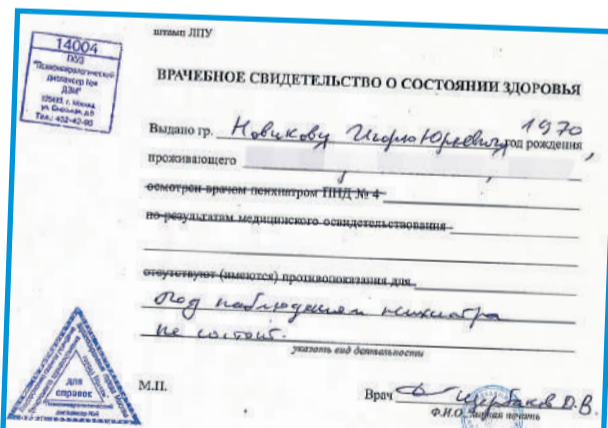 штамп ЛПУ
14004
ПКУЗ
"Психоневрологический
диспансер №4
ДЗМ"
Тел.: 452-42-95
ВРАЧЕБНОЕ СВИДЕТЕЛЬСТВО О СОСТОЯНИИ ЗДОРОВЬЯ
Выдано гр. Новикову Игорю Юрьевичу 1970 год рождения,
проживающего
осмотрен врачом психиатром ПНД № 4
по результатам медицинского освидетельствования
отсутствуют (имеются) противопоказания для
Под наблюдением психиатра
не состоит.
указать вид деятельности
для
справок
М.П.
Врач Щербаков Д.В.
Ф.И.О. личная печать